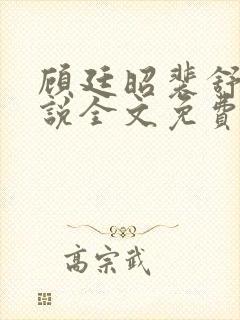 顾廷昭裴舒
說全文免費
高宗武